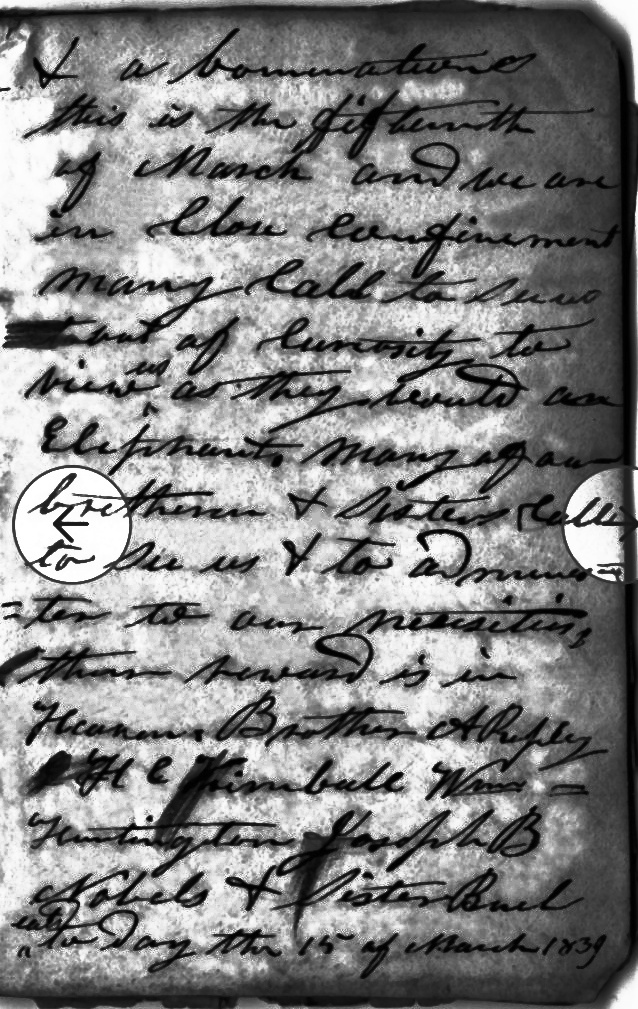 & a bominations
this is the fifteenth
of March and we are
in Close Confinement
many Calld to see us
out of Curiosity to
view us as they would an
Elephant, many of our
bretheren & Sisters Calld
to see us & to adminis=
=ter to our necisities,
thair reward is in
Heaven. Brother A Riply
H C Kimball Wm =
Huntington Joseph B
Nobels & Sister Buel
calld to day the 15 of March 1839